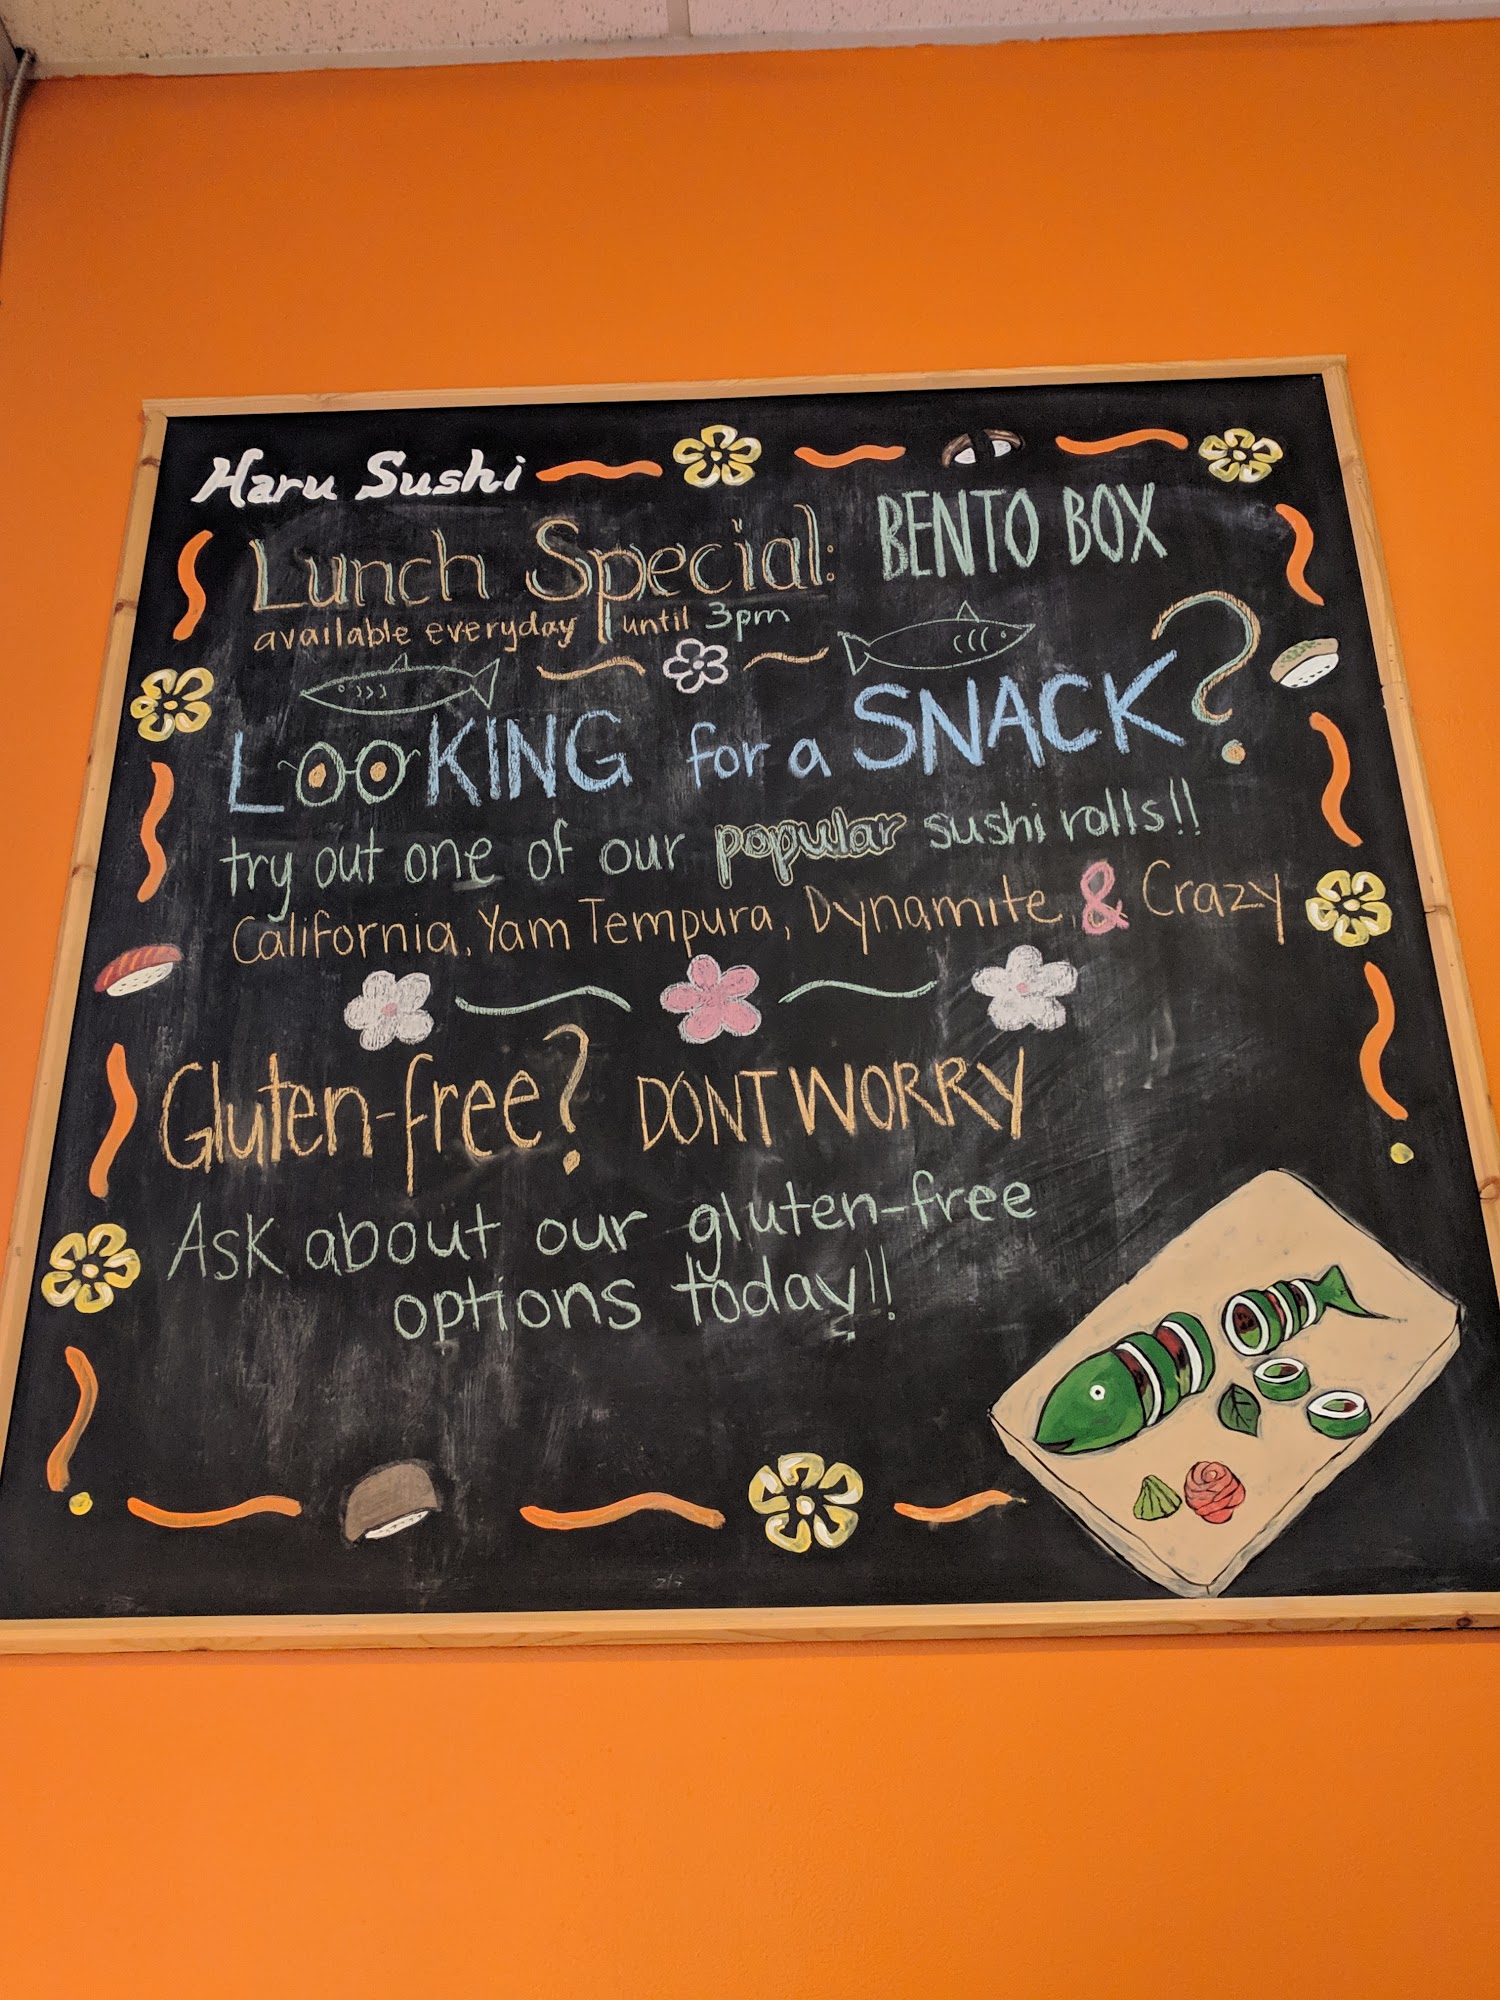 Haru Sushi
Lunch Special: BENTO BOX
available everyday until 3pm
LOOKING for a SNACK?
try out one of our popular sushi rolls!!
California, Yam Tempura, Dynamite & Crazy
Gluten-free? DONT WORRY
Ask about our gluten-free
options today!!